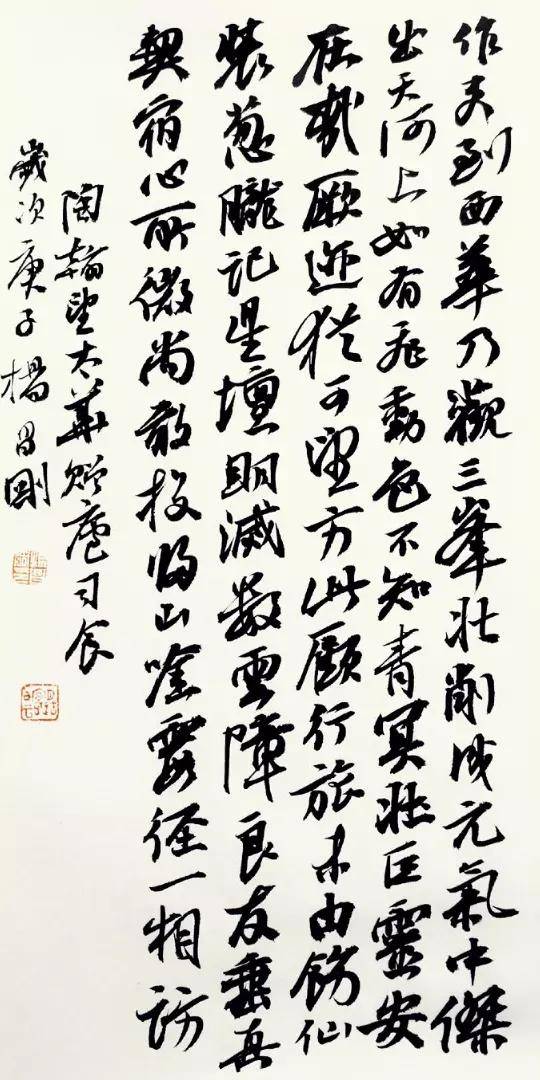 作吏到西華乃觀三峯壯削成元氣中傑
出天河上如有飛動色不知青冥壯巨靈安
在哉厥迹猶可望方此顧行旅末由飭仙
裝葱朧記星壇明滅數雲障良友垂真
契宿心所微尚敢投歸山唫霞徑一相訪
陶翰望太華贈盧司倉
歲次庚子楊昌剛